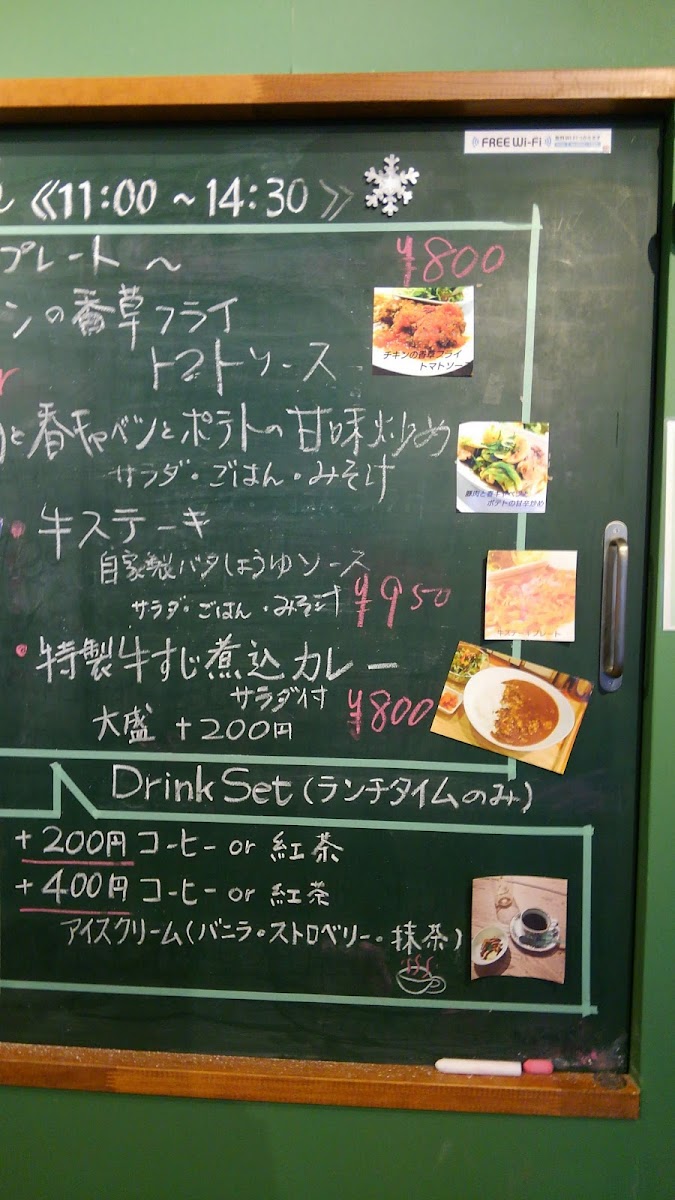 FREE Wi-Fi
《11:00 ~ 14:30》
プレート ~ ¥800
ンの香草フライ
トマトソース
チキンの香草フライ
トマトソース
r
と春キャベツとポテトの甘味炒め
サラダ・ごはん・みそ汁
豚肉と春キャベツと
ポテトの甘辛炒め
・牛ステーキ
自家製バタしょうゆソース
サラダ・ごはん・みそ汁 ¥950
牛ステーキプレート
・特製牛すじ煮込カレー
サラダ付
大盛 +200円 ¥800
Drink Set (ランチタイムのみ)
+200円 コーヒー or 紅茶
+400円 コーヒー or 紅茶
アイスクリーム(バニラ・ストロベリー・抹茶)